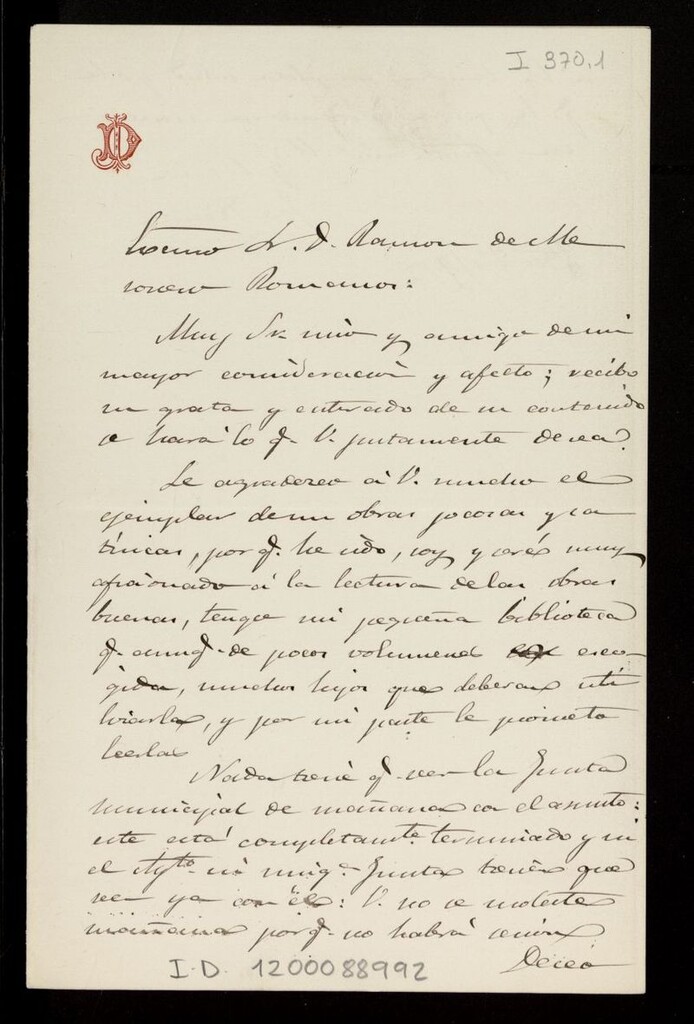 I 370,1
JD
Excmo Sr. D. Ramon de Me
sonero Romanos:
Muy Sr. mio y amigo de mi
mayor consideración y afecto; recibo
su grata y enterado de su contenido
se hará lo q. V. justamente desea.
Le agradezco á V. mucho el
ejemplar de sus obras jocosas y sa
tíricas, porq. he sido, soy y seré muy
aficionado á la lectura de las obras
buenas, tengo mi pequeña biblioteca
q. aunq. de pocos volumenes esco-
gida, muchos hijos que deberan uti
lizarla, y por mi parte le prometo
leerlas
Nada tiene q. ver la Junta
municipal de mañana con el asunto:
este está completamte. terminado y ni
el Aytto. ni ningª. Junta tienen que
ver ya con él: V. no se moleste
mañana porq. no habrá sesion
Deseo
I.D. 1200088992